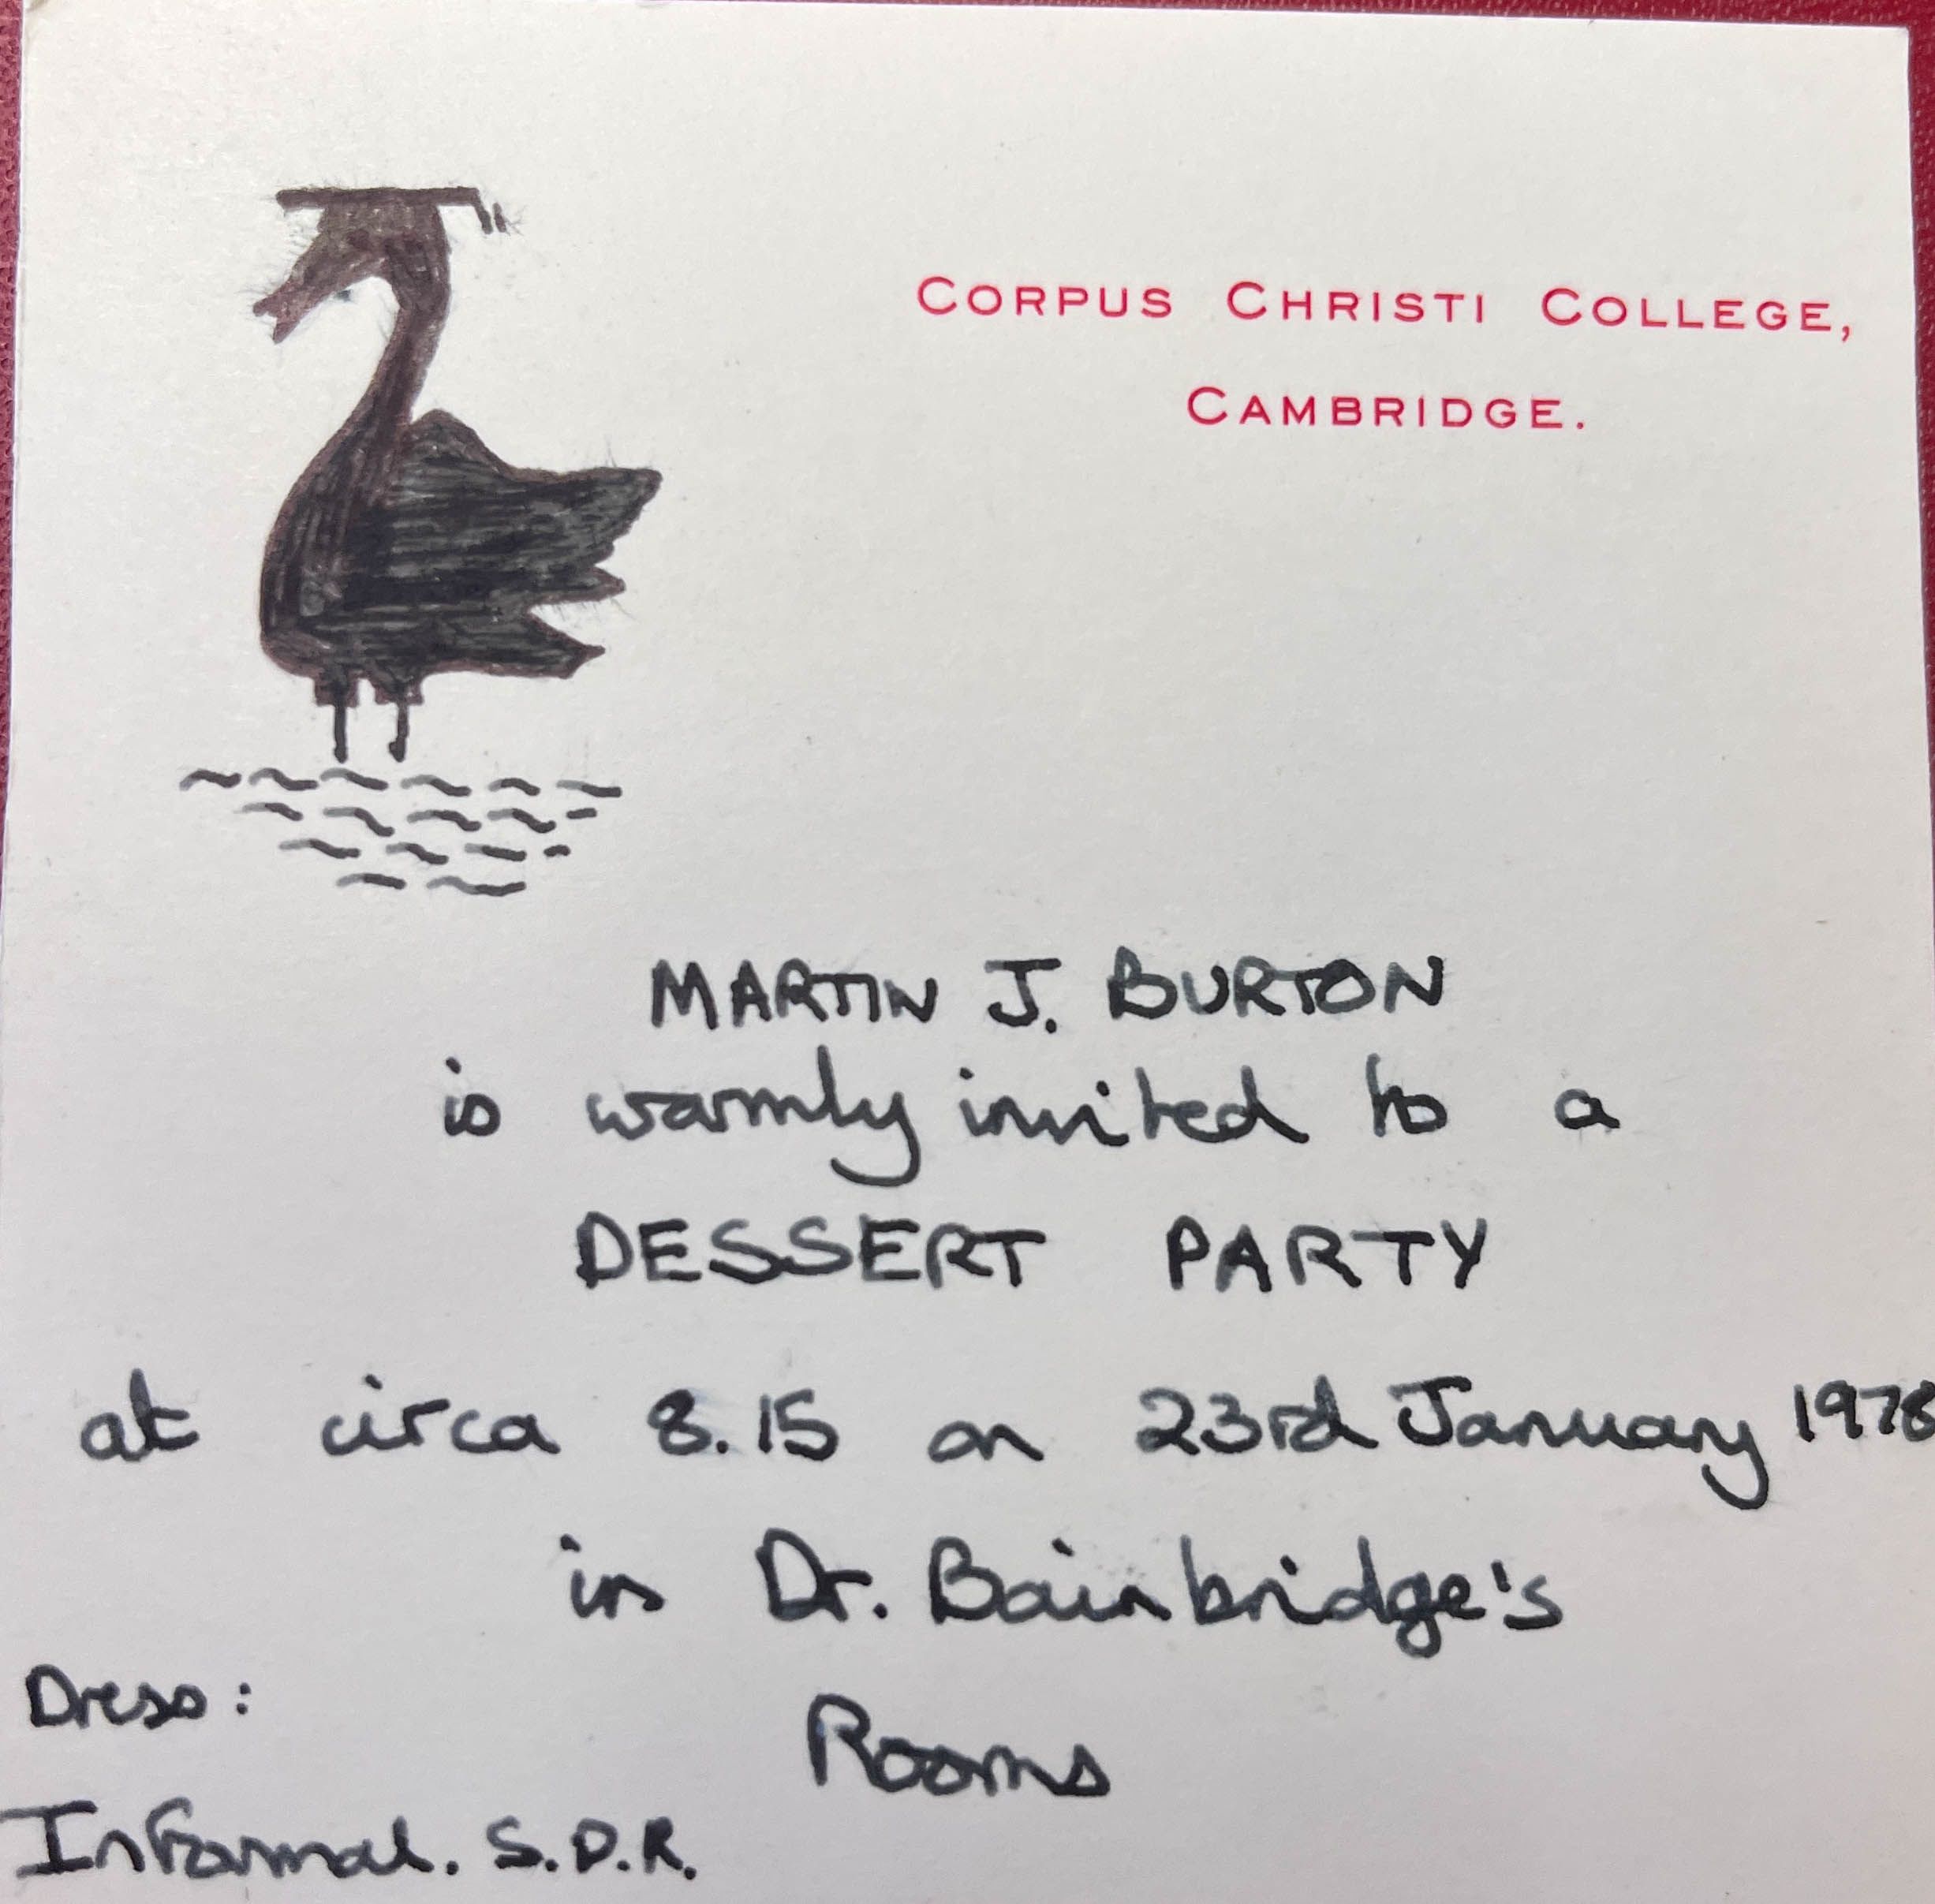 CORPUS CHRISTI COLLEGE,
CAMBRIDGE.
MARTIN J. BURTON
is warmly invited to a
DESSERT PARTY
at circa 8.15 on 23rd January 1978
in Dr. Bainbridge's
Rooms
Dress:
Informal. S.D.R.